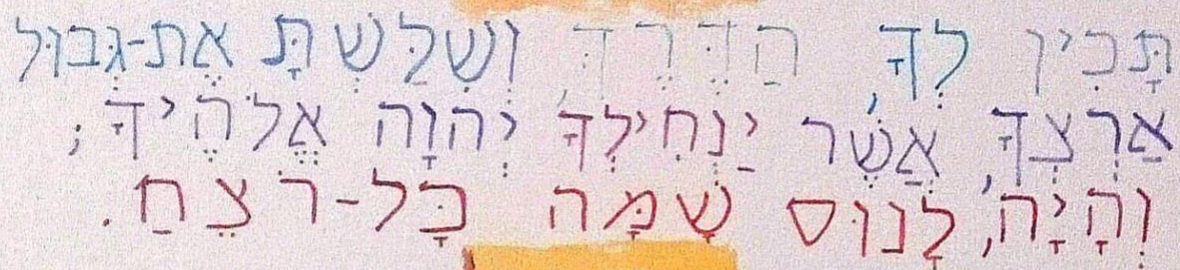 תָּכִין לְךָ, הַדֶּרֶךְ, וְשִׁלַּשְׁתָּ אֶת-גְּבוּל
אַרְצְךָ, אֲשֶׁר יַנְחִילְךָ יְהוָה אֱלֹהֶיךָ;
וְהָיָה, לָנוּס שָׁמָּה כָּל-רֹצֵחַ.